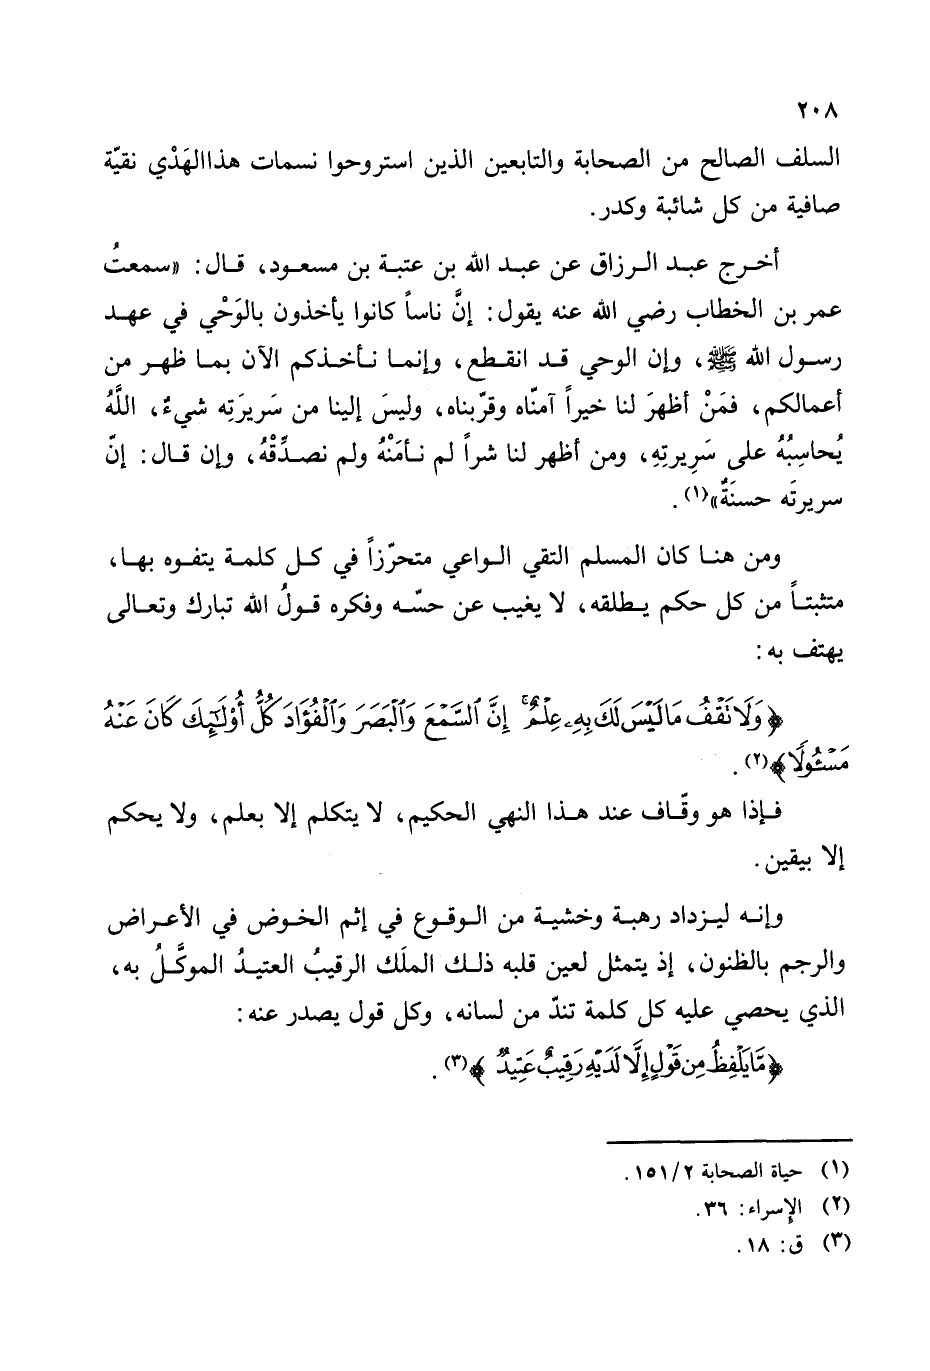 ٢٠٨
السلف الصالح من الصحابة والتابعين الذين استروحوا نسمات هذاالهَدْي نقيّة
صافية من كل شائبة وكدر.
أخرج عبد الرزاق عن عبد الله بن عتبة بن مسعود، قال: «سمعتُ
عمر بن الخطاب رضي الله عنه يقول: إنَّ ناساً كانوا يأخذون بالوَحْي في عهد
رسول الله ﷺ، وإن الوحي قد انقطع، وإنما نأخذكم الآن بما ظهر من
أعمالكم، فمَنْ أظهرَ لنا خيراً آمنّاه وقرّبناه، وليسَ إلينا من سَريرَتِه شيءٌ، اللَّهُ
يُحاسِبُهُ على سَرِيرتِهِ، ومن أظهر لنا شراً لم نأمَنْهُ ولم نصدِّقْهُ، وإن قال: إنّ
سريرتَه حسنَةٌ»(١).
ومن هنا كان المسلم التقي الواعي متحرّزاً في كل كلمة يتفوه بها،
متثبتاً من كل حكم يطلقه، لا يغيب عن حسّه وفكره قولُ الله تبارك وتعالى
يهتف به:
﴿وَلَا نَقْفُ مَا لَيْسَ لَكَ بِهِۦ عِلْمٌۚ إِنَّ ٱلسَّمْعَ وَٱلْبَصَرَ وَٱلْفُؤَادَ كُلُّ أُوْلَٰٓئِكَ كَانَ عَنْهُ
مَسْـُٔولًا﴾(٢).
فإذا هو وقّاف عند هذا النهي الحكيم، لا يتكلم إلا بعلم، ولا يحكم
إلا بيقين.
وإنه ليزداد رهبة وخشية من الوقوع في إثم الخوض في الأعراض
والرجم بالظنون، إذ يتمثل لعين قلبه ذلك الملَك الرقيبُ العتيدُ الموكَّلُ به،
الذي يحصي عليه كل كلمة تندّ من لسانه، وكل قول يصدر عنه:
﴿مَّا يَلْفِظُ مِن قَوْلٍ إِلَّا لَدَيْهِ رَقِيبٌ عَتِيدٌ﴾(٣).
(١) حياة الصحابة ١٥١/٢.
(٢) الإسراء: ٣٦.
(٣) ق: ١٨.